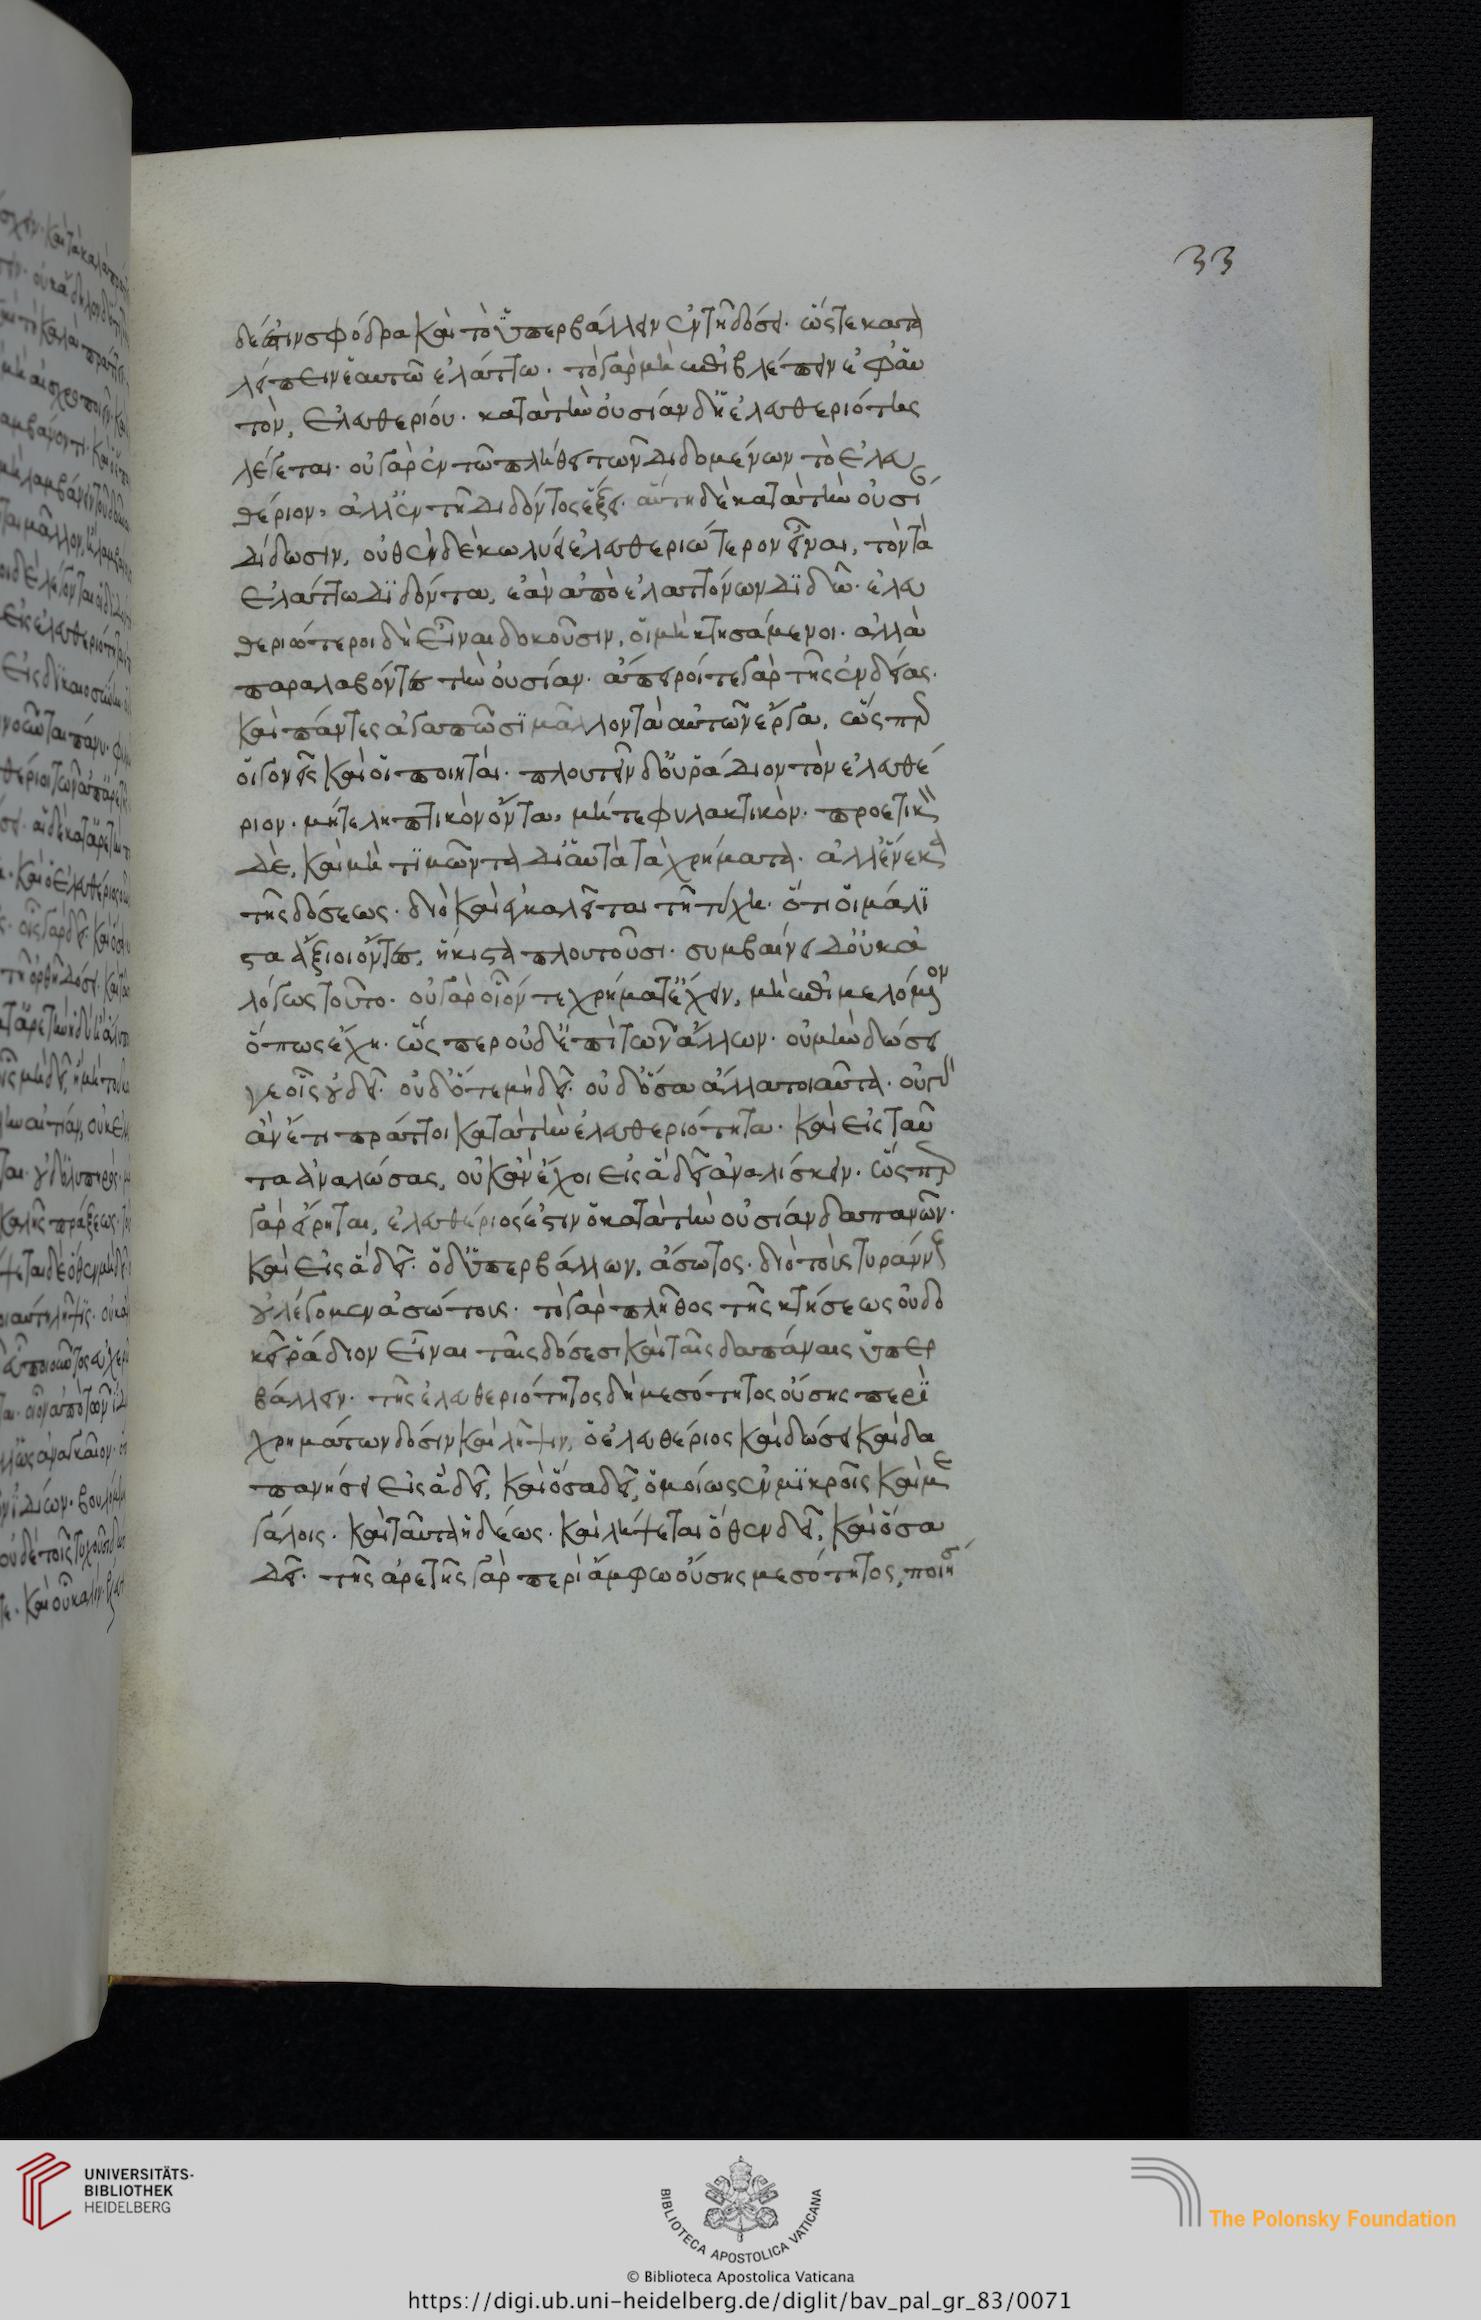 33
δέ ἐστιν σφόδρα καὶ τὸ ὑπερβάλλειν ἐν τῆ δόσει· ὥστε κατα
λείπειν ἑαυτῶ ἐλάττω· τὸ γὰρ μὴ ἐπιβλέπειν ἐφ' ἑαυ
τὸν, ἐλευθερίου· κατὰ τὴν οὐσίαν δ' ἡ ἐλευθεριότης
λέγεται· οὐ γὰρ ἐν τῶ πλήθει τῶν διδομένων τὸ ἐλευ
θέριον, ἀλλ' ἐν τῆ διδόντος ἕξει· αὕτη δὲ κατὰ τὴν οὐσί
δίδωσιν, οὐθὲν δὲ κωλύει ἐλευθεριώτερον εἶναι, τὸν τὰ
ἐλάττω διδόντα, ἐὰν ἀπὸ ἐλαττόνων διδῶ· ἐλευ
θεριώτεροι δὴ εἶναι δοκοῦσιν, οἱ μὴ κτησάμενοι· ἀλλὰ
παραλαβόντες τὴν οὐσίαν· ἄπειροί τε γὰρ τῆς ἐνδείας·
καὶ πάντες ἀγαπῶσι μᾶλλον τὰ αὐτῶν ἔργα, ὥσπερ
οἱ γονεῖς καὶ οἱ ποιηταὶ· πλουτεῖν δ' οὐ ῥάδιον τὸν ἐλευθέ
ριον· μήτε ληπτικὸν ὄντα, μήτε φυλακτικὸν· προετικὸν
δὲ, καὶ μὴ τιμῶντα δι' αὐτὰ τὰ χρήματα· ἀλλ' ἕνεκα
τῆς δόσεως· διὸ καὶ ἐγκαλεῖται τῆ τύχη· ὅτι οἱ μάλι
στα ἄξιοι ὄντες, ἥκιστα πλουτοῦσι· συμβαίνει δ' οὐκ ἀ
λόγως τοῦτο· οὐ γὰρ οἷόν τε χρήματ' ἔχειν, μὴ ἐπιμελόμενον
ὅπως ἔχη· ὥσπερ οὐδ' ἐπὶ τῶν ἄλλων· οὐ μὴν δώσει
γε οἷς οὐ δεῖ· οὐδ' ὅτε μὴ δεῖ· οὐδ' ὅσα ἄλλα τοιαῦτα· οὐ γὰρ
ἂν ἔτι πράττοι κατὰ τὴν ἐλευθεριότητα· καὶ εἰς ταῦ
τα ἀναλώσας, οὐκ ἂν ἔχοι εἰς ἃ δεῖ ἀναλίσκειν· ὥσπερ
γὰρ εἴρηται, ἐλευθέριός ἐστιν ὁ κατὰ τὴν οὐσίαν δαπανῶν·
καὶ εἰς ἃ δεῖ· ὁ δ' ὑπερβάλλων, ἄσωτος· διὸ τοὺς τυράννους
οὐ λέγομεν ἀσώτους· τὸ γὰρ πλῆθος τῆς κτήσεως οὐ δο
κεῖ ῥάδιον εἶναι ταῖς δόσεσι καὶ ταῖς δαπάναις ὑπερ
βάλλειν· τῆς ἐλευθεριότητος δὴ μεσότητος οὔσης περὶ
χρημάτων δόσιν καὶ λῆψιν, ὁ ἐλευθέριος καὶ δώσει καὶ δα
πανήσει εἰς ἃ δεῖ, καὶ ὅσα δεῖ, ὁμοίως ἐν μικροῖς καὶ με
γάλοις· καὶ ταῦτα ἡδέως· καὶ λήψεται ὅθεν δεῖ, καὶ ὅσα
δεῖ· τῆς ἀρετῆς γὰρ περὶ ἄμφω οὔσης μεσότητος, ποιήσ
UNIVERSITÄTS-
BIBLIOTHEK
HEIDELBERG
BIBLIOTECA APOSTOLICA VATICANA
The Polonsky Foundation
© Biblioteca Apostolica Vaticana
https://digi.ub.uni-heidelberg.de/diglit/bav_pal_gr_83/0071